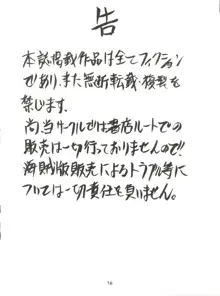 告
本誌掲載作品は全てフィクション
であり、また無断転載・複製を
禁じます.
尚、当サークルでは書店ルートでの
販売は一切行っておりませんので!
海賊版販売によるトラブル等に
ついては一切責任を負いません。